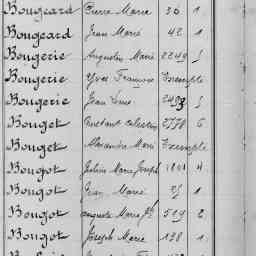 Bougeard Pierre Marie 36 1
Bougeard Jean Marie 42 1
Bougerie Augustin Marie 2249 5
Bougerie Yves François Exempté
Bougerie Jean Louis 2493 5
Bouget Constant Celestin 2778 6
Bouget Alexandre Marie Exempté
Bougot Julien Marie Joseph 4
Bougot Jean Marie 1
Bougot Auguste Marie 519 2
Bougot Joseph Marie 138 1